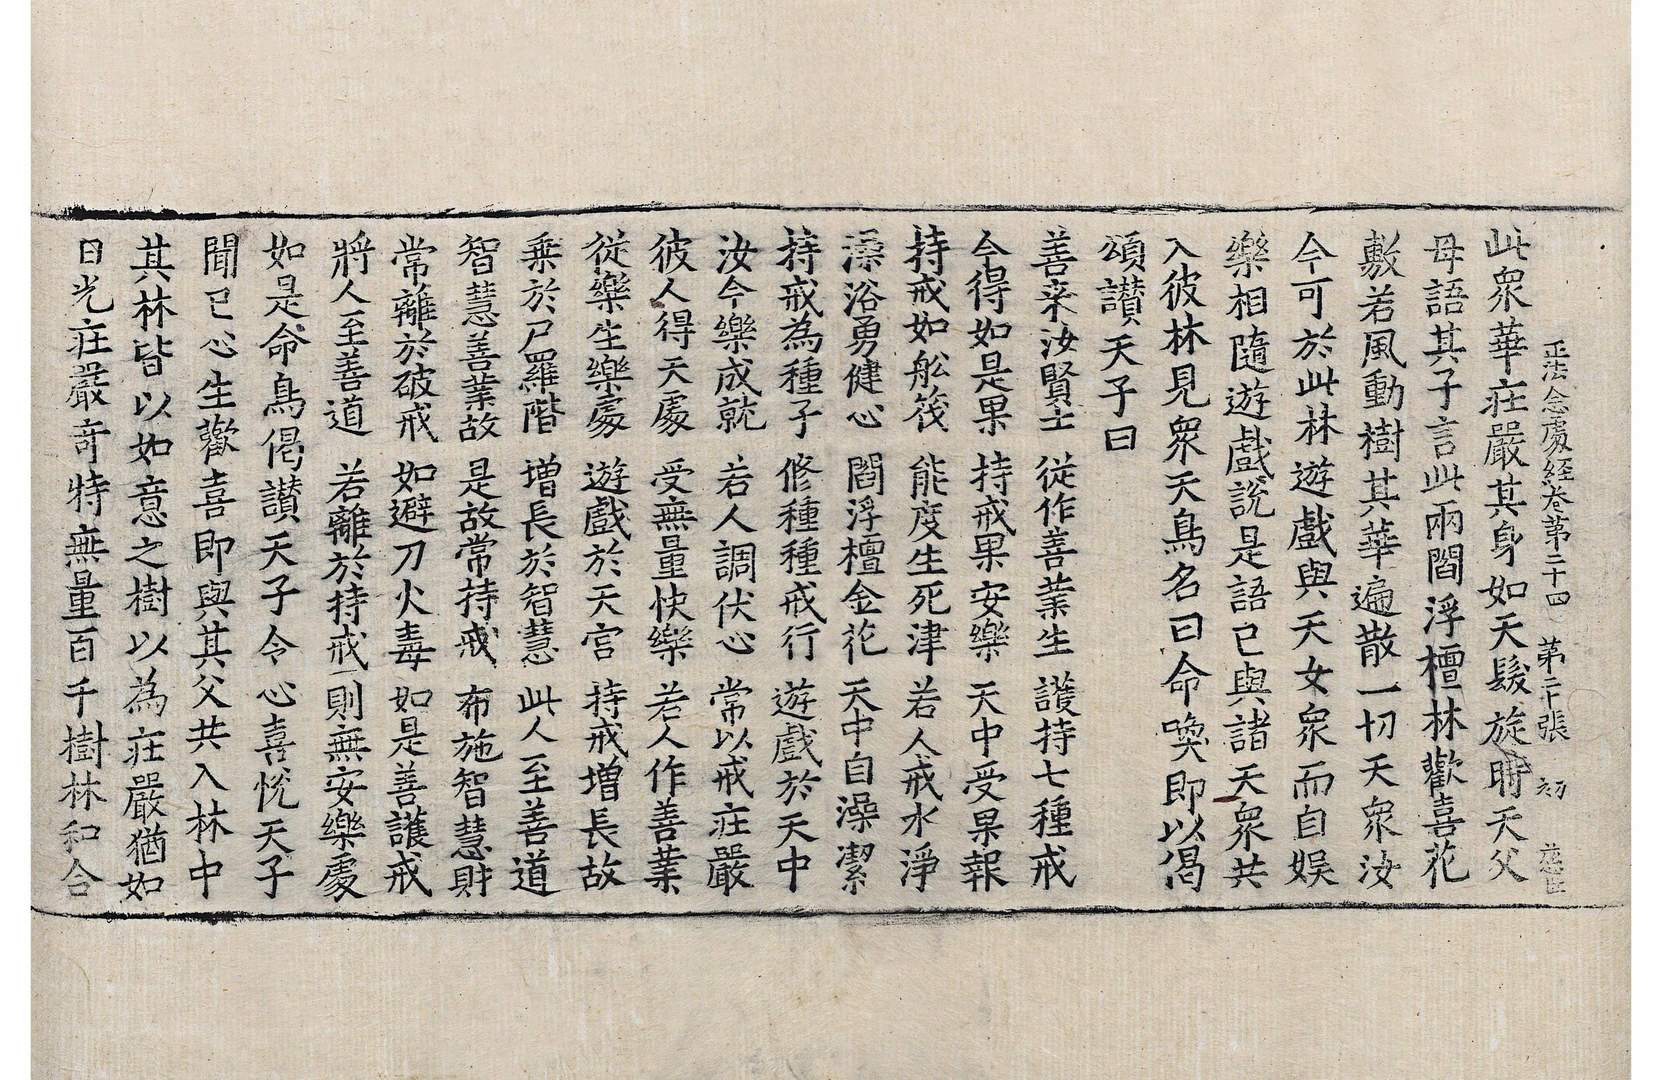 正法念處經卷第二十四 第二十張 初
此衆華莊嚴其身如天髮旋時天父
母語其子言此兩閻浮檀林歡喜花
敷若風動樹其華遍散一切天衆汝
今可於此林遊戲與天女衆而自娛
樂相隨遊戲說是語已與諸天衆共
入彼林見衆天鳥名曰命喚即以偈
頌讃天子曰
善来汝賢士 從作善業生 護持七種戒
今得如是果 持戒果安樂 天中受果報
持戒如舩筏 能度生死津 若人戒水淨
澡浴勇健心 閻浮檀金花 天中自澡潔
持戒為種子 修種種戒行 遊戲於天中
汝今樂成就 若人調伏心 常以戒莊嚴
彼人得天處 受無量快樂 若人作善業
從樂生樂處 遊戲於天宮 持戒增長故
乗於尸羅階 增長於智慧 此人至善道
智慧善業故 是故常持戒 布施智慧財
常離於破戒 如避刀火毒 如是善護戒
將人至善道 若離於持戒 則無安樂處
如是命鳥偈讃天子令心喜恱天子
聞已心生歡喜即與其父共入林中
其林皆以如意之樹以為莊嚴猶如
日光莊嚴竒特無量百千樹林和合